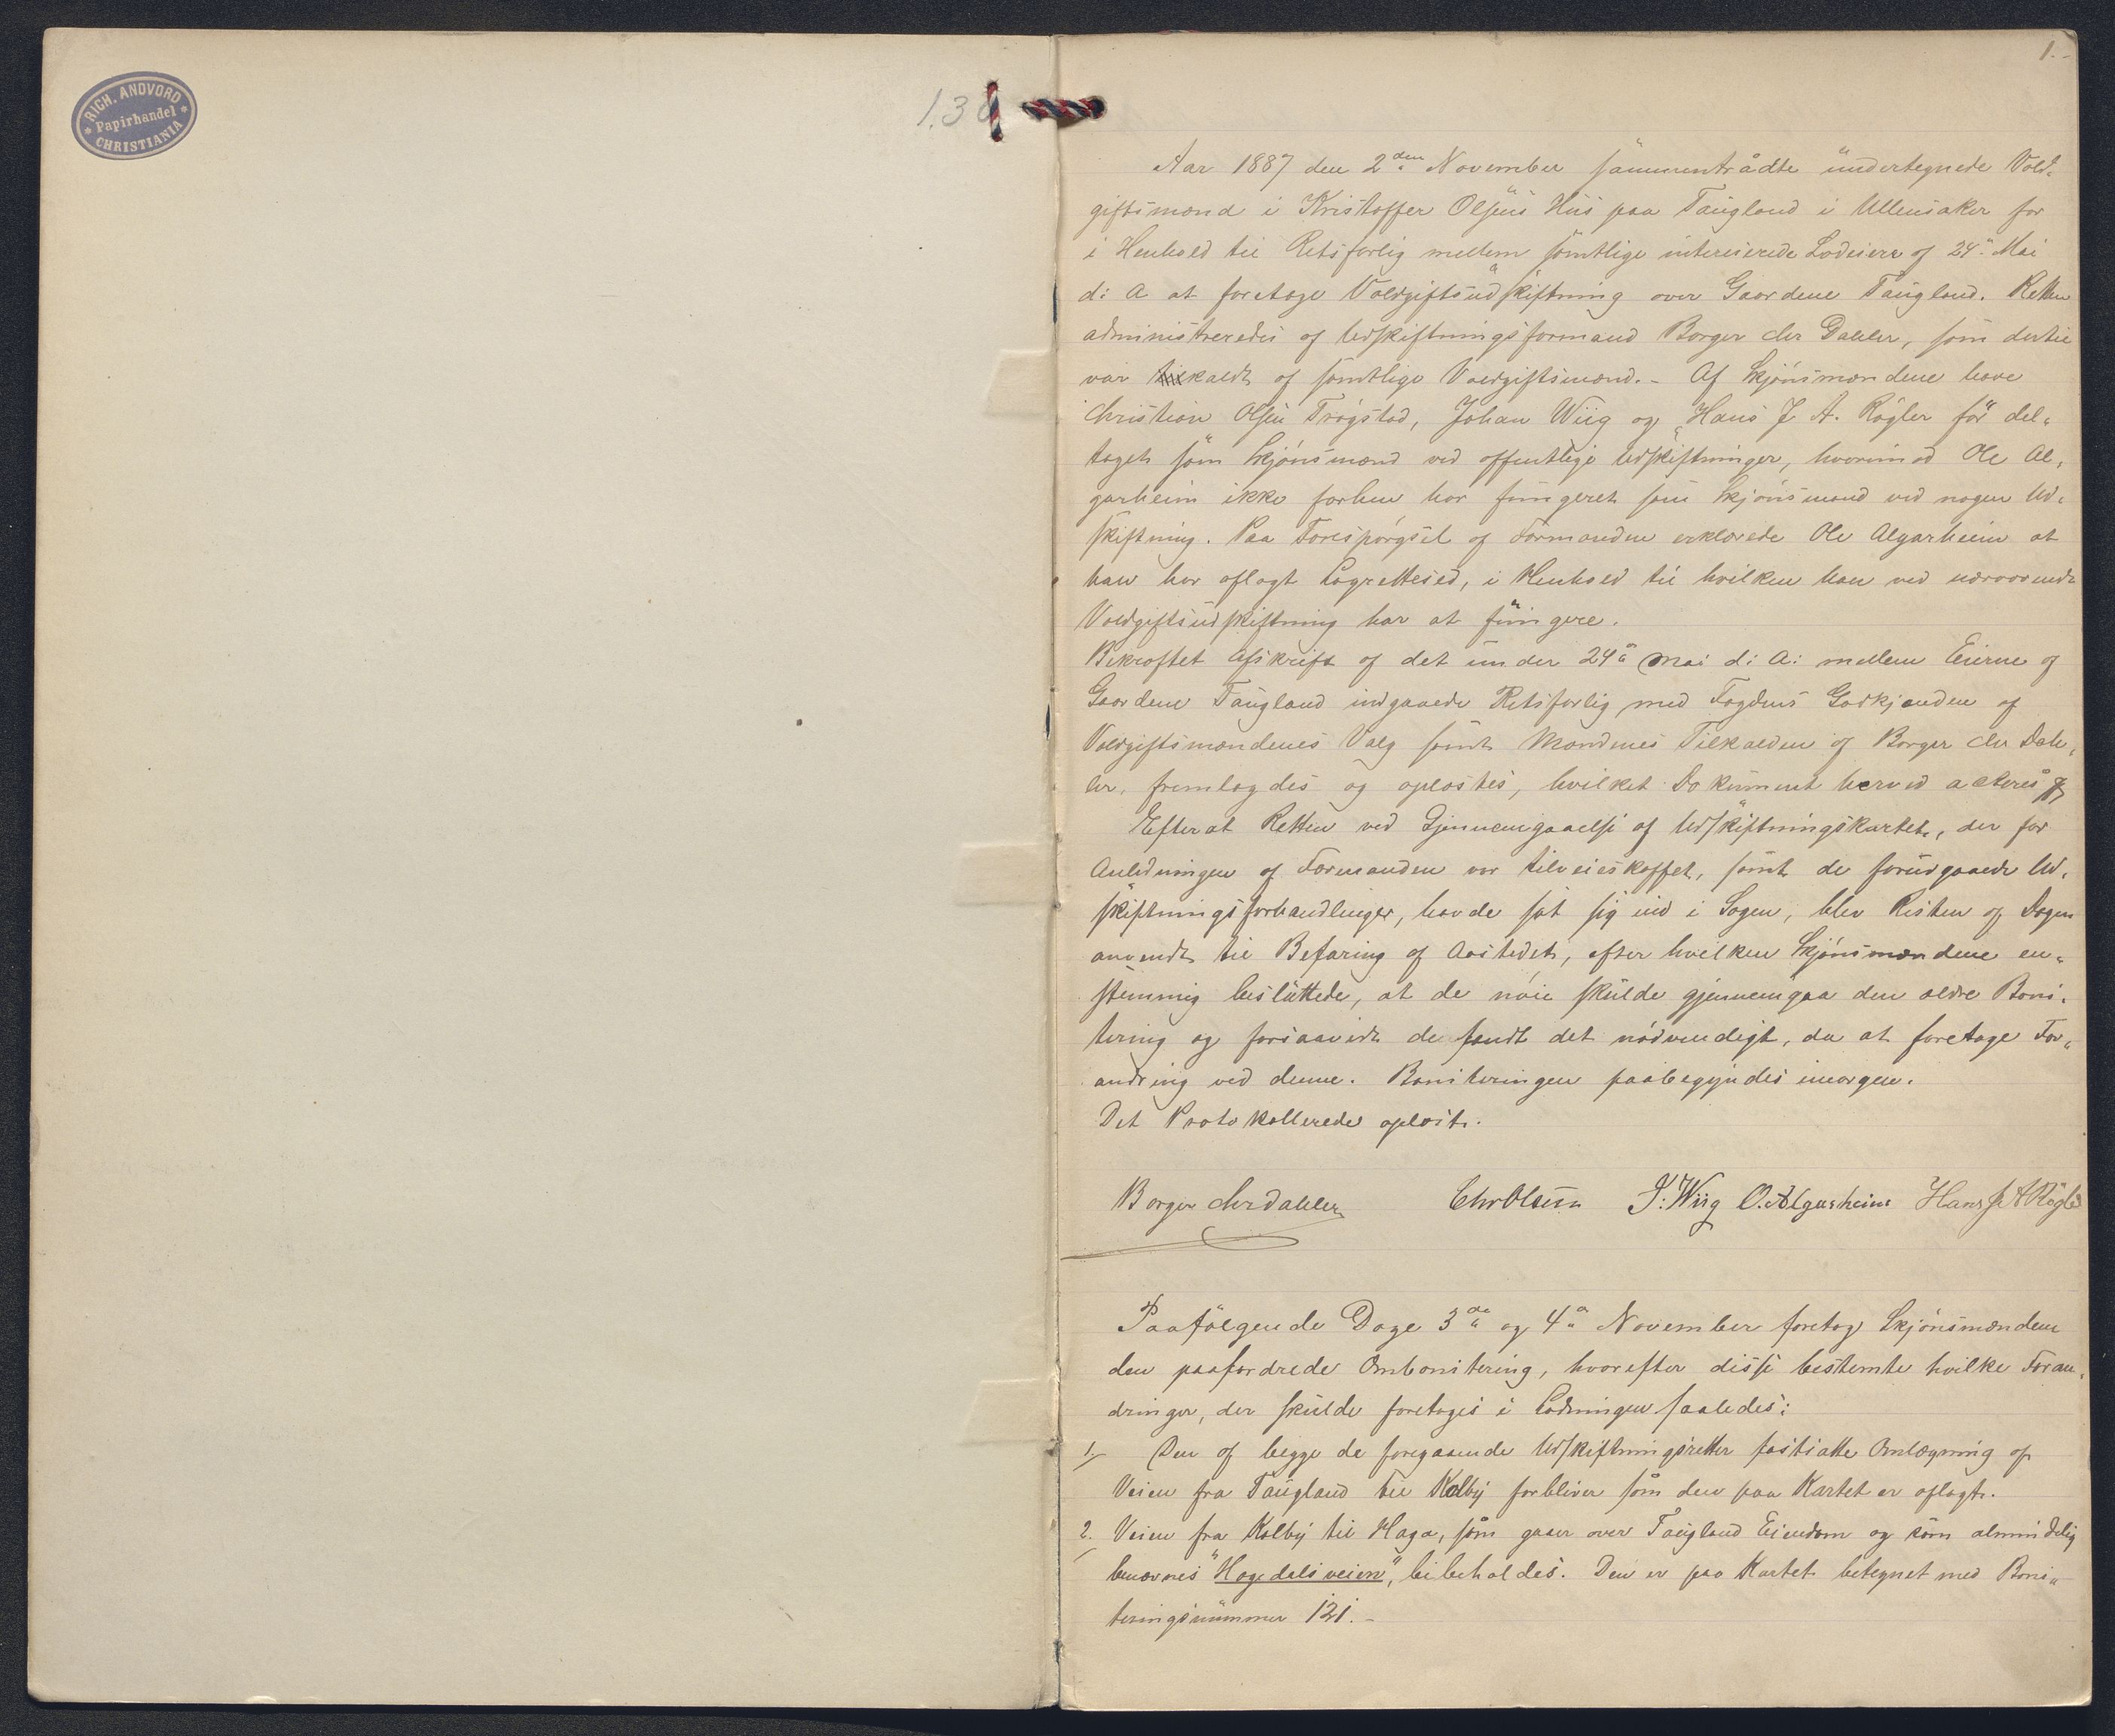 RICH. ANDVORD
Papirhandel
CHRISTIANIA
1.30
1.-
Aar 1887 den 2den November sammentrådte undertegnede Vold-
giftsmænd i Kristoffer Olsens Hus paa Taugland i Ullensaker for
i Henhold til Retsforlig mellem samtlige interesserede Lodeiere af 24. Mai
d: A at foretage Voldgiftsudskiftning over Gaardene Taugland. Retten
administreredes af Udskiftningsformand Borger Chr Dahler, som dertil
var tilkaldt af samtlige Voldgiftsmænd. - Af Skjönsmændene have
Christian Olsen Trøgstad, Johan Wiig og Hans J A. Rögler för del-
taget som Skjönsmænd ved offentlige Udskiftninger, hvorimod Ole Al-
garheim ikke forhen har fungeret som Skjönsmand ved nogen Ud-
skiftning. Paa Forespörgsel af Formanden erklærede Ole Algarheim at
han har aflagt Lagrettesed, i Henhold til hvilken han ved nærværende
Voldgiftsudskiftning har at fungere.
Bekræftet Afskrift af det under 24. Mai d: A: mellem Eierne af
Gaardene Taugland indgaaede Retsforlig med Fogdens Godkjenden af
Voldgiftsmændenes Valg samt Mændenes Tilkalden af Borger Chr Dah-
ler, fremlagdes og oplæstes, hvilket Dokument herved acteres
Efterat Retten ved Gjennemgaaelse af Udskiftningskartet, der for
Anledningen af Formanden var tilveieskaffet, samt de forudgaaede Ud-
skiftningsforhandlinger, havde sat sig ind i Sagen, blev Resten af Dagen
anvendt til Befaring af Aastedet, efter hvilken Skjönsmændene en-
stemmig besluttede, at de nöie skulde gjennemgaa den ældre Boni-
tering og forsaavidt de fandt det nödvendigt, da at foretage For-
andring ved denne. Boniteringen paabegyndes imorgen.
Det Protokollerede oplæst.
Borger Chr Dahler Chr Olsen J. Wiig O. Algarheim Hans J A Rögler
Paafölgende Dage 3de og 4. November foretog Skjönsmændene
den paafordrede Ombonitering, hvorefter disse bestemte hvilke Foran-
dringer, der skulde foretages i Lodningen saaledes:
1. Den af begge de foregaaende Udskiftningsretter fastsatte Omlægning af
Veien fra Taugland til Kolby forbliver som den paa Kartet er aflagt.
2. Veien fra Kolby til Haga, som gaaer over Taugland Eiendom og som almindelig
benævnes "Hagedalsveien", bibeholdes. Den er paa Kartet betegnet med Boni-
teringsnummer 121. -